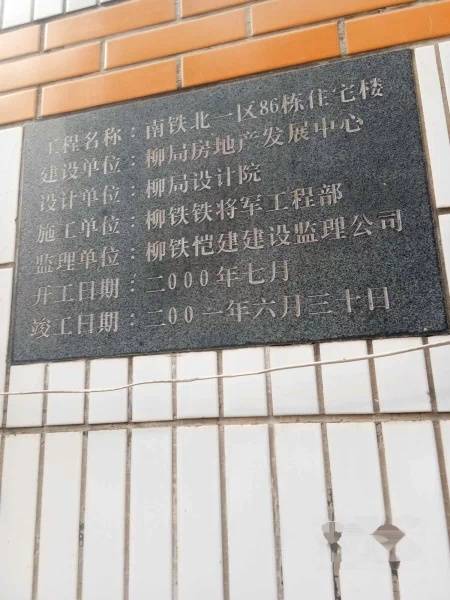 工程名称：南铁北一区86栋住宅楼
建设单位：柳局房地产发展中心
设计单位：柳局设计院
施工单位：柳铁铁将军工程部
监理单位：柳铁恺建建设监理公司
开工日期：二000年七月
竣工日期：二00一年六月三十日